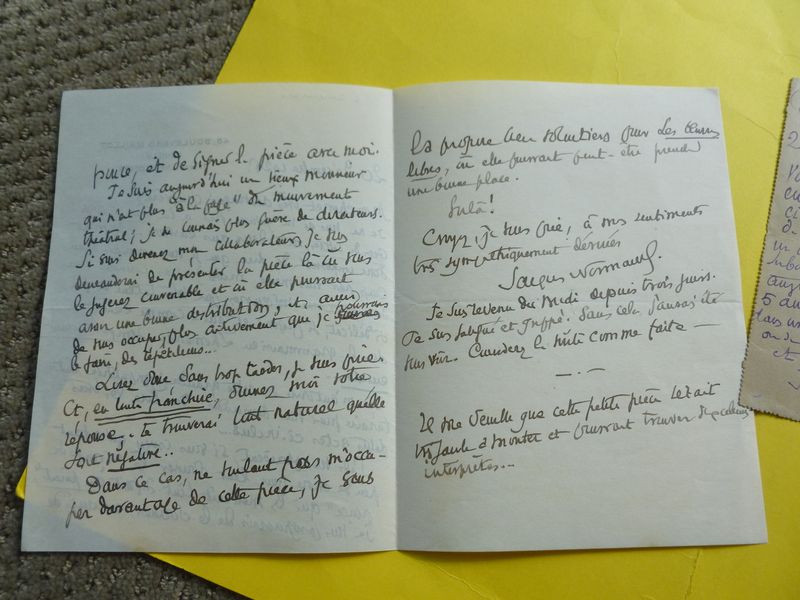 et de signer la pièce avec moi.
Je suis aujourd'hui un vieux monsieur
qui n'est plus "à la page" du mouvement
théâtral; je ne connais plus guère de directeurs.
Si vous devenez mon collaborateur, je vous
demanderai de présenter la pièce là où vous
le jugerez convenable et où elle pourrait
avoir une bonne distribution, et aussi
de vous occuper, plus activement que je pourrais
le faire, des répétitions...
Lisez donc sans trop tarder, je vous prie.
Et, en toute franchise, donnez moi votre
réponse. Je trouverai tout naturel qu'elle
soit négative..
Dans ce cas, ne voulant pas m'occu-
per davantage de cette pièce, je vous
la propose bien volontiers pour Les Œuvres
libres, où elle pourrait peut-être prendre
une bonne place.
Voilà!
Croyez, je vous prie, à mes sentiments
très sympathiquement dévoués
Jacques Normand.
Je suis revenu du Midi depuis trois jours.
Je suis fatigué et grippé. Sans cela, j'aurais été
vous voir. Considérez la visite comme faite —
Il me semble que cette petite pièce serait
très facile à monter et pourrait trouver
interprètes...